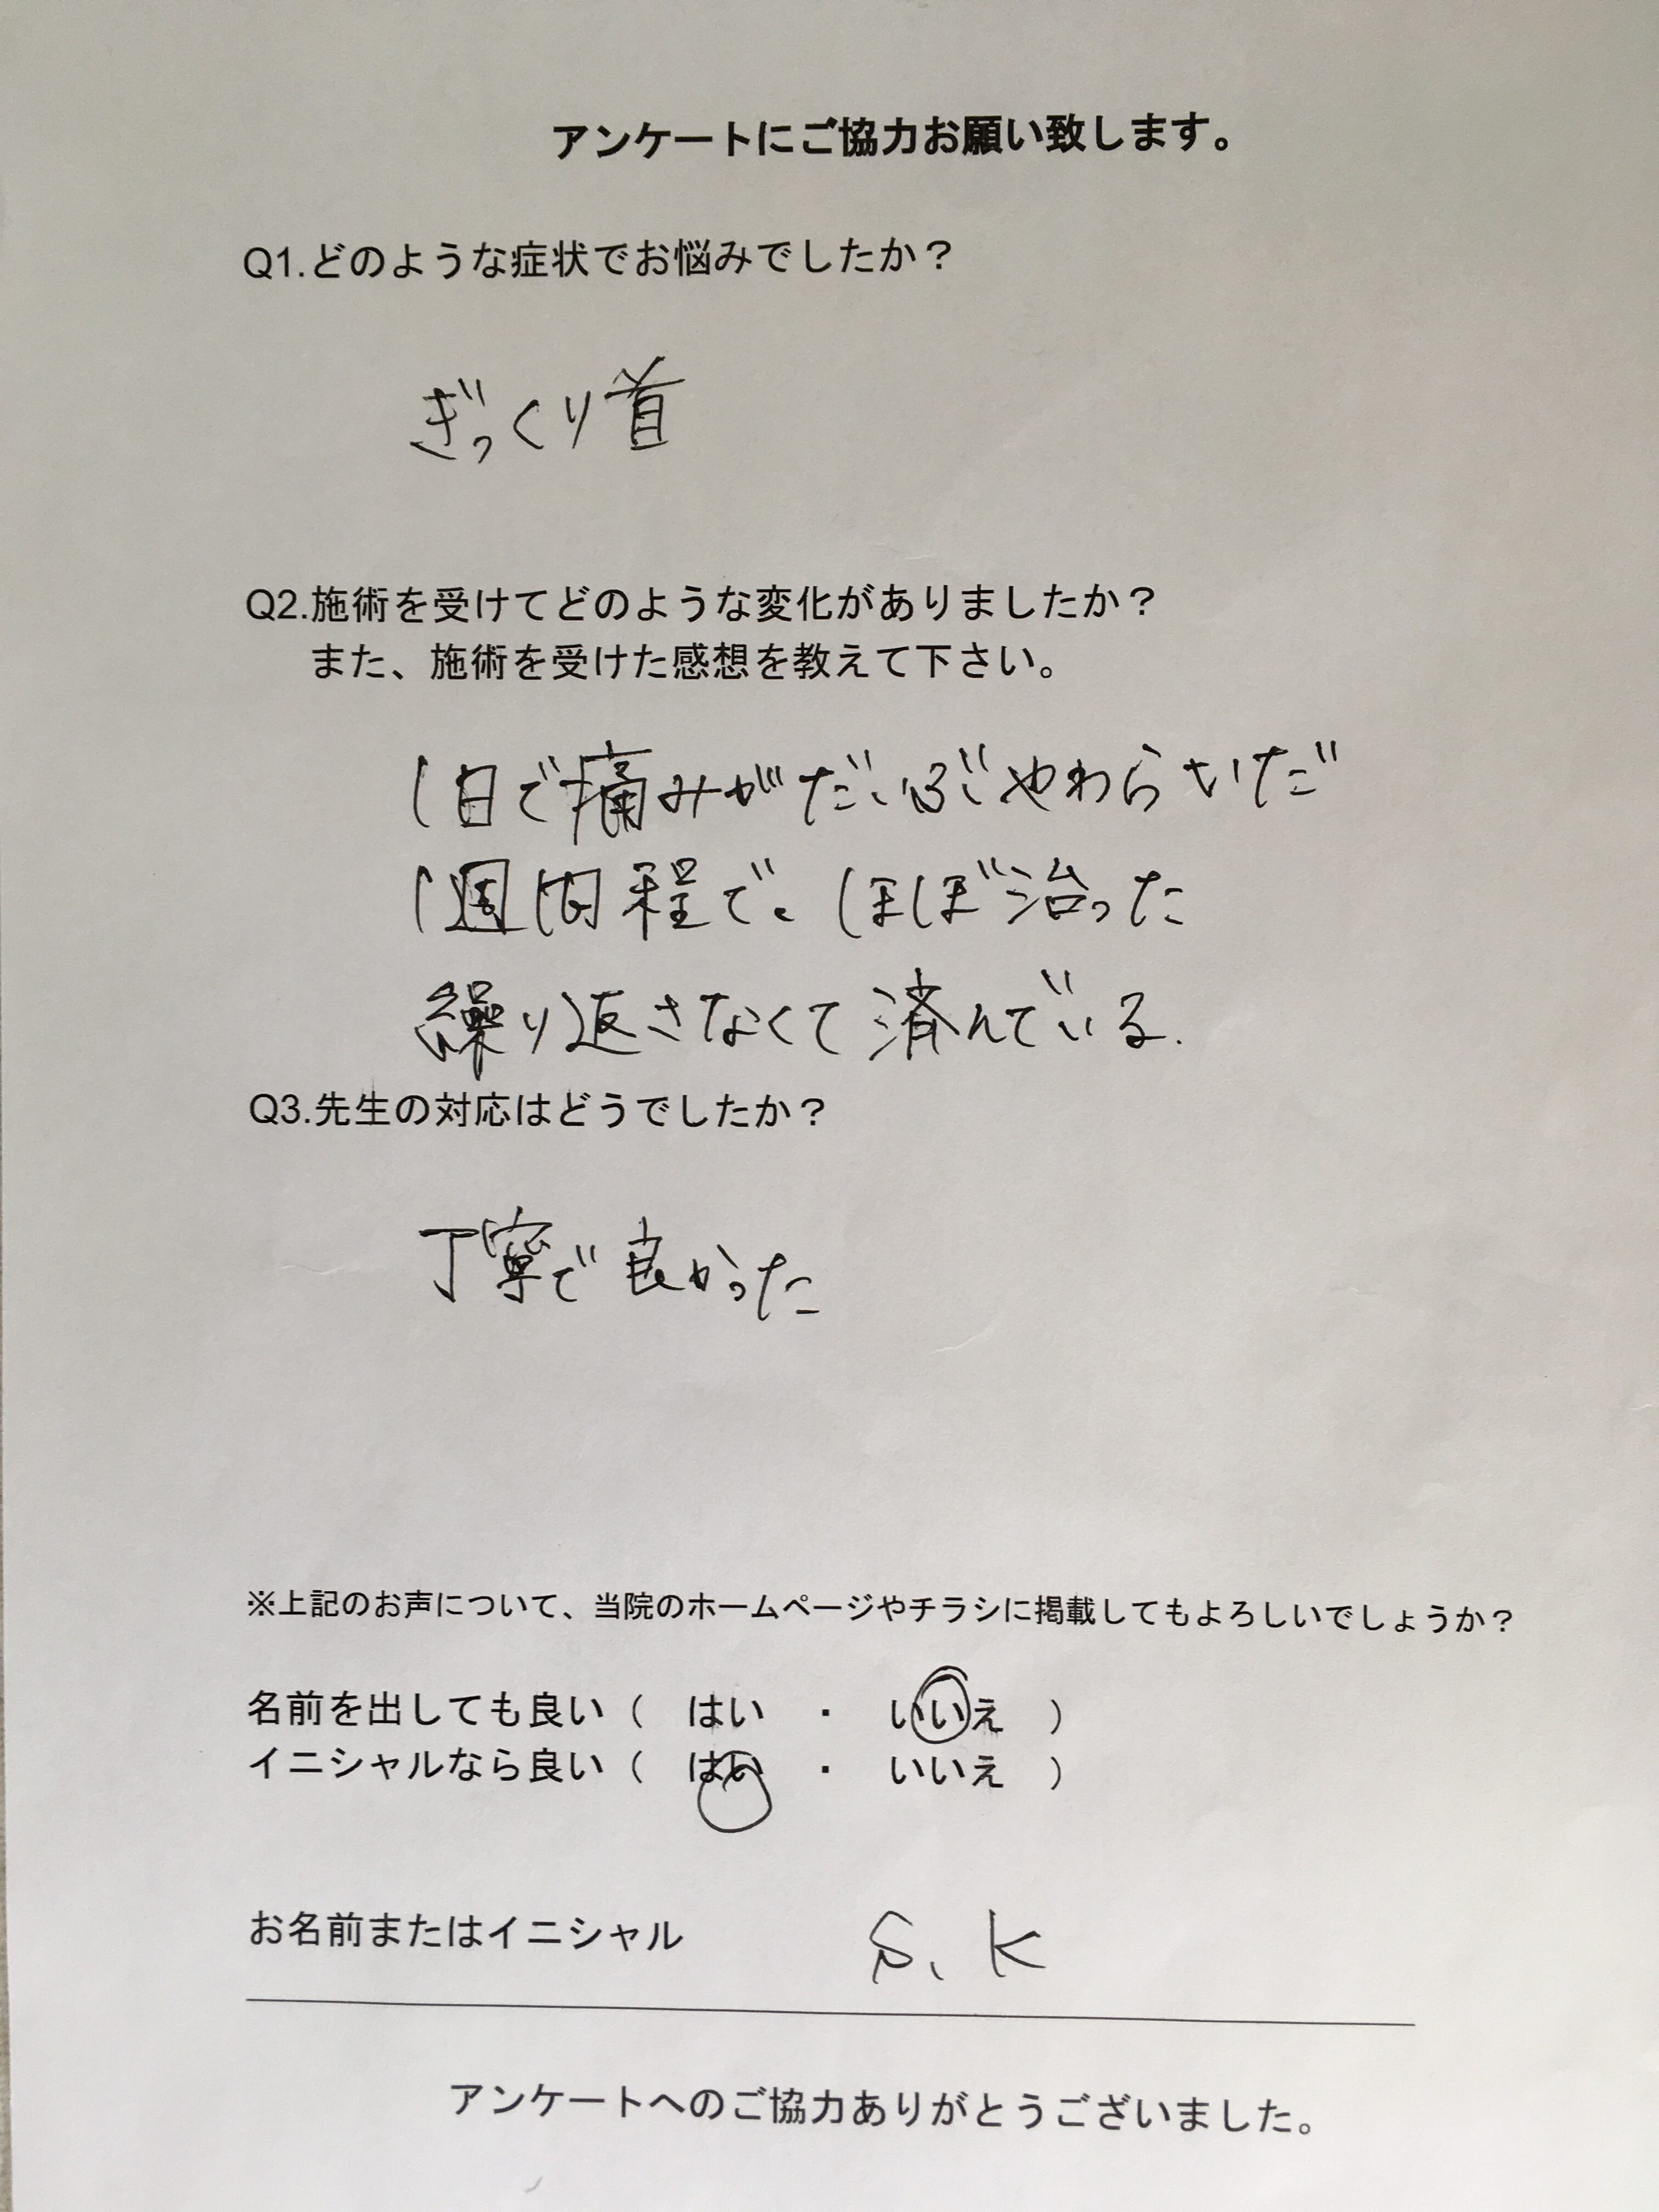 アンケートにご協力お願い致します。
Q1.どのような症状でお悩みでしたか？
ぎっくり首
Q2.施術を受けてどのような変化がありましたか？
また、施術を受けた感想を教えて下さい。
1日で痛みがだいぶやわらいだ
1週間程で、ほぼ治った
繰り返さなくて済んでいる.
Q3.先生の対応はどうでしたか？
丁寧で良かった
※上記のお声について、当院のホームページやチラシに掲載してもよろしいでしょうか？
名前を出しても良い（　はい　・　いいえ　）
イニシャルなら良い（　はい　・　いいえ　）
お名前またはイニシャル　S、K
アンケートへのご協力ありがとうございました。